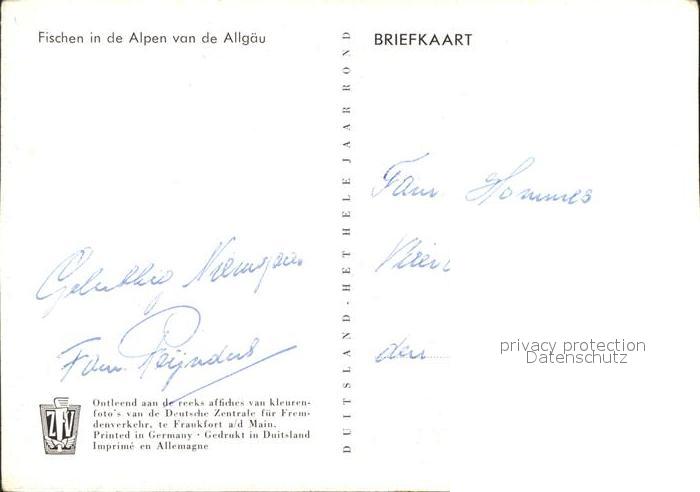 Fischen in de Alpen van de Allgäu
BRIEFKAART
DUITSLAND - HET HELE JAAR ROND
Fam. Hommes
Klein
den
privacy protection
Datenschutz
Gelukkig
Fam. Reijnders
ZFV
Ontleend aan de reeks affiches van kleuren-
foto's van de Deutsche Zentrale für Frem-
denverkehr, te Frankfort a/d Main.
Printed in Germany · Gedrukt in Duitsland
Imprimé en Allemagne